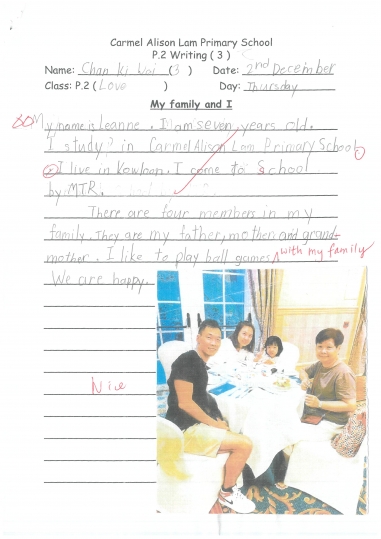 Carmel Alison Lam Primary School
P.2 Writing ( 3 )
Name: Chan Ki Wai (3) Date: 2nd December
Class: P.2 ( Love ) Day: Thursday
My family and I
My name is Leanne. I am seven years old.
I study in Carmel Alison Lam Primary School.
I live in Kowloon. I come to School
by MTR.
There are four members in my
family. They are my father, mother and grand-
mother. I like to play ball games with my family
We are happy.
Nice